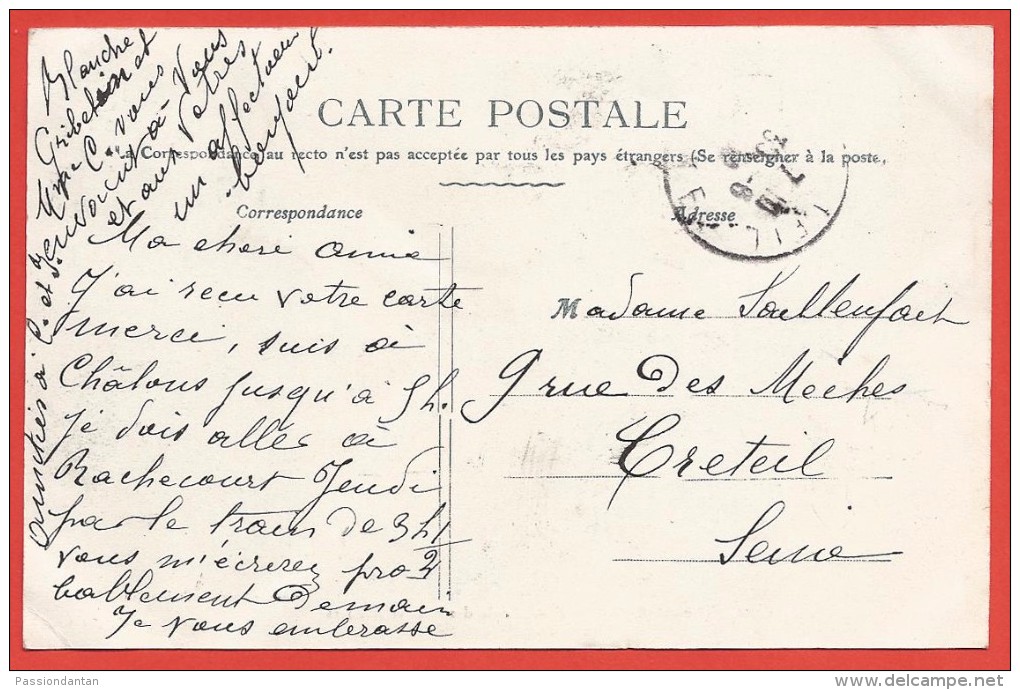 CARTE POSTALE
La Correspondance au recto n'est pas acceptée par tous les pays étrangers (Se renseigner à la poste.
Correspondance
Adresse
Ma chere amie
J'ai recu votre carte
merci, suis à
Châlons jusqu'à 5h.
je dois aller à
Rachecourt Jeudi
par le train de 3h 1/2
vous m'écrirez pro
bablement Demain
Je vous embrasse
amitiés à C. et J.
Blanche
Gribelin et
Mme C. vous
envoient à vous
et aux votres
un affectueux
bonjour.
Madame Saillenfait
9 rue Des Mèches
Creteil
Seine
Passiondantan
delcampe.net